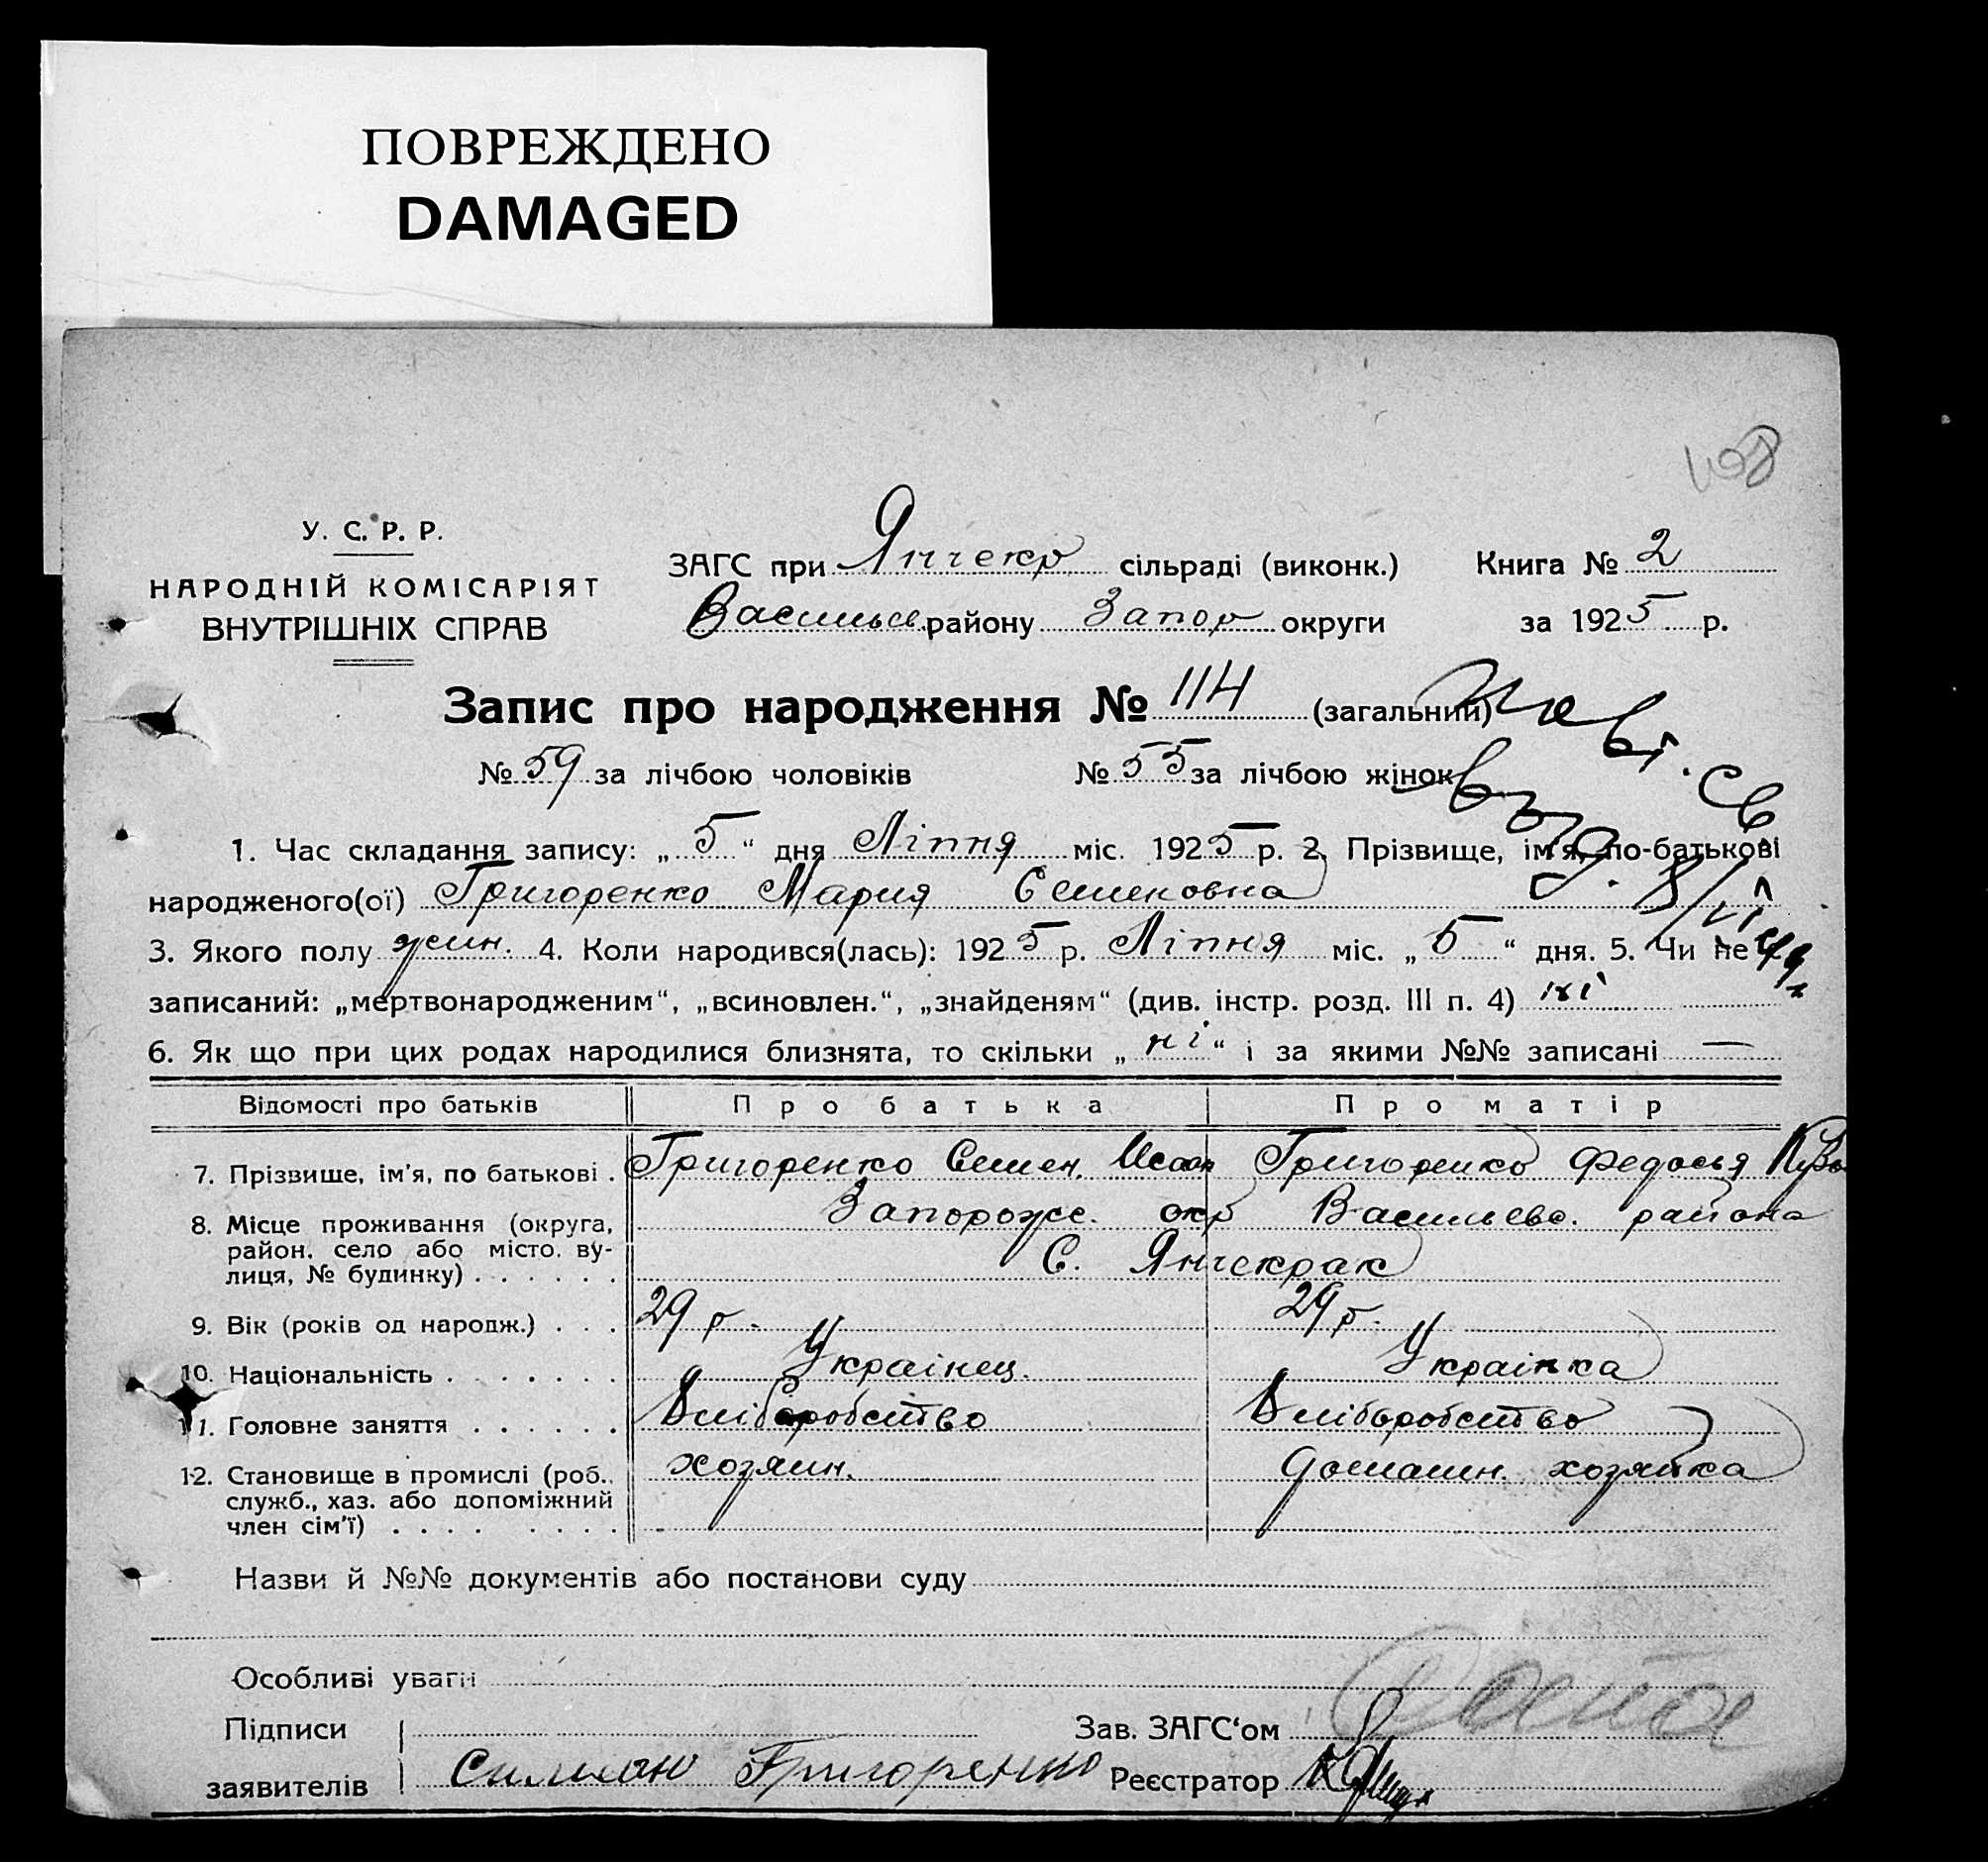 ПОВРЕЖДЕНО
DAMAGED
У. С. Р. Р.
НАРОДНІЙ КОМІСАРІЯТ
ВНУТРІШНІХ СПРАВ
ЗАГС при Янчекр сільраді (виконк.) Книга № 2
Васильев. району Запор округи за 1925 р.
Запис про народження № 114 (загальний)
№ 59 за лічбою чоловіків № 55 за лічбою жінок
1. Час складання запису: „5“ дня Ліпня міс. 1925 р. 2. Прізвище, ім'я, по-батькові
народженого(ої) Григоренко Мария Семеновна
3. Якого полу жин. 4. Коли народився(лась): 1925 р. Ліпня міс. „5“ дня. 5. Чи не
записаний: „мертвонародженим“, „всиновлен.“, „знайденям“ (див. інстр. розд. III п. 4) ні
6. Як що при цих родах народилися близнята, то скільки „ні“ і за якими №№ записані —
Відомості про батьків Про батька Про матір
7. Прізвище, ім'я, по батькові . Григоренко Семен. Григоренко Федосья
8. Місце проживання (округа, Запорожс. окр Васильевс. района
район. село або місто. ву-
лиця, № будинку) . . . . . . С. Янчекрак
9. Вік (років од народж.) . . . 29 р. 29 р.
10. Національність . . . . . . . Украінец. Украінка
11. Головне заняття . . . . . . Хліборобство Хліборобство
12. Становище в промислі (роб., хозяин. домашн. хозяйка
служб., хаз. або допоміжний
член сім'ї) . . . . . . . .
Назви й №№ документів або постанови суду
Особливі уваги
Підписи Зав. ЗАГС‘ом
заявителів Григоренко Реєстратор